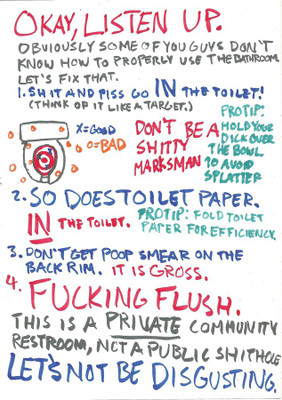 OKAY, LISTEN UP.
OBVIOUSLY SOME OF YOU GUYS DON'T
KNOW HOW TO PROPERLY USE THE BATHROOM.
LET'S FIX THAT.
1. SHIT AND PISS GO IN THE TOILET!
(THINK OF IT LIKE A TARGET.)
X=GOOD
O=BAD
DON'T BE A
SHITTY
MARKSMAN
PROTIP:
HOLD YOUR
DICK OVER
THE BOWL
TO AVOID
SPLATTER
2. SO DOES TOILET PAPER.
IN THE TOILET.
PROTIP: FOLD TOILET
PAPER FOR EFFICIENCY.
3. DON'T GET POOP SMEAR ON THE
BACK RIM. IT IS GROSS.
4. FUCKING FLUSH.
THIS IS A PRIVATE COMMUNITY
RESTROOM, NOT A PUBLIC SHITHOLE
LET'S NOT BE DISGUSTING.